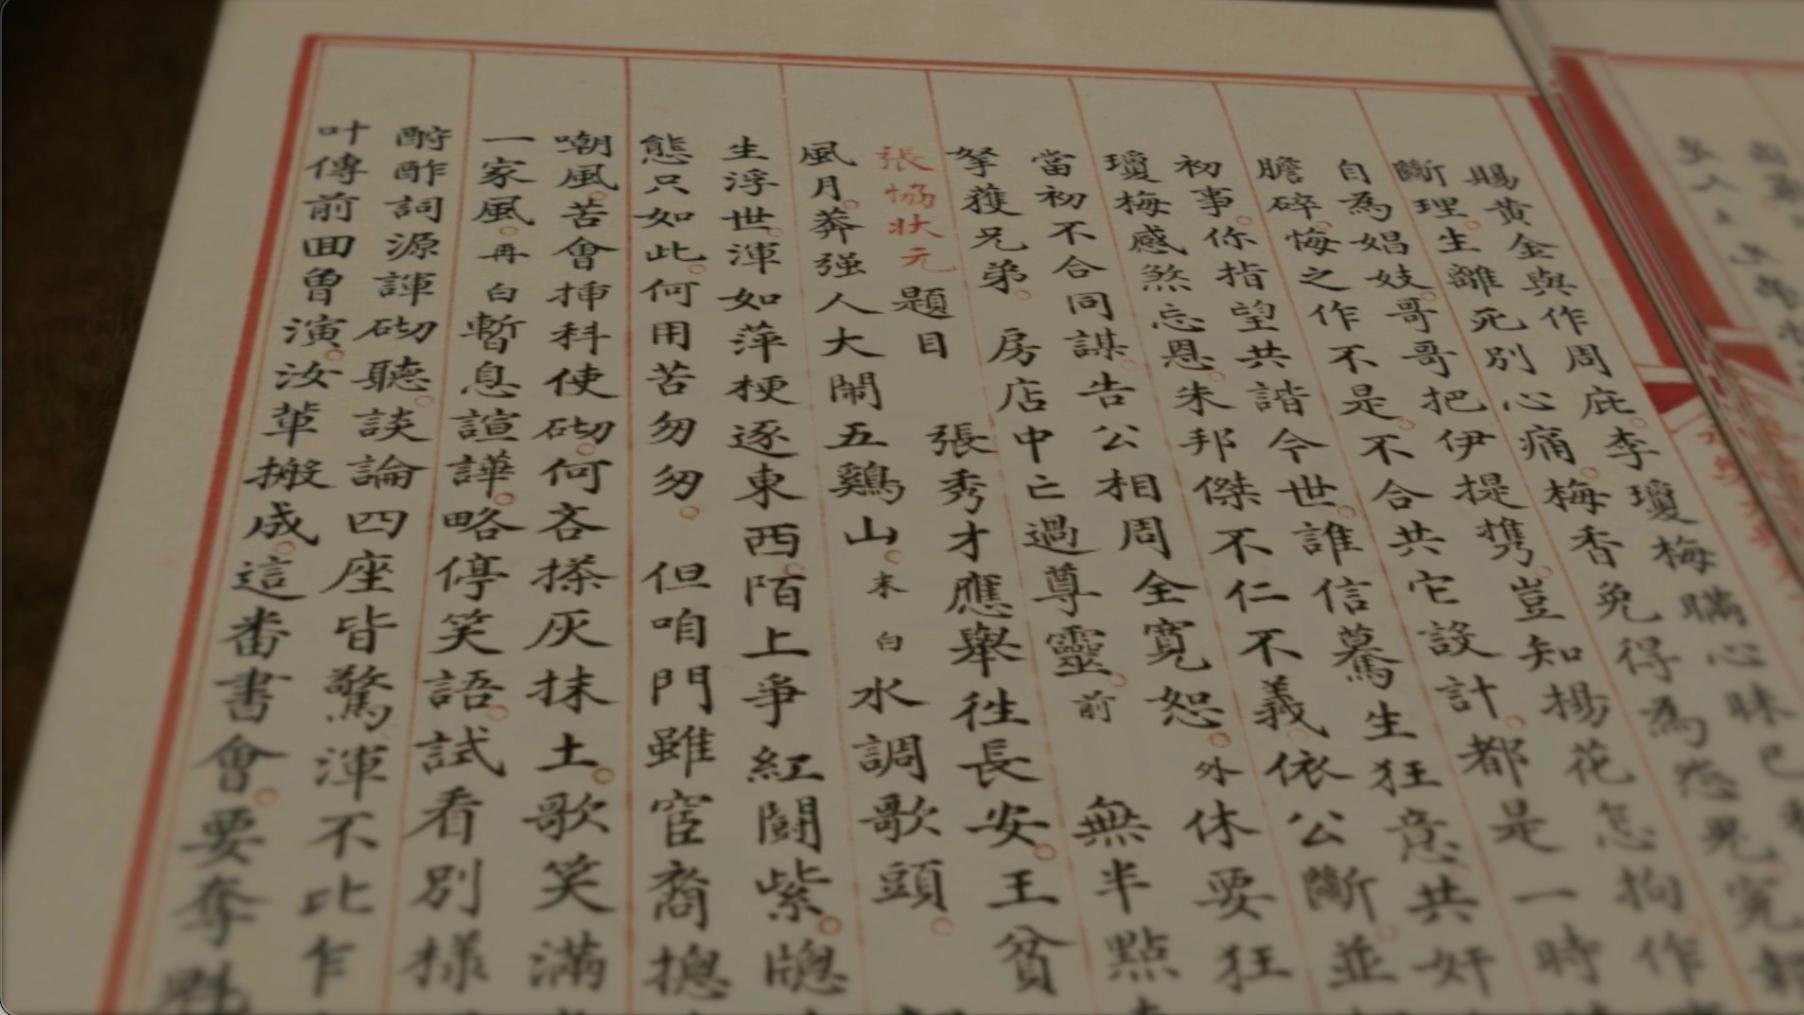 賜黃金與作周庇李瓊梅瞞心昧己
斷理生離死別心痛梅香免得為怨
自為娼妓哥哥把伊提携豈知揚花怎拘作
膽碎悔之作不是不合共它設計都是一時
初事你指望共諧今世誰信驀生狂意共奸
瓊梅感煞忘恩朱邦傑不仁不義依公斷並
當初不合同謀告公相周全寬恕外休要狂
拏獲兄弟 房店中亡過尊靈前 無半點
張協狀元題目 張秀才應舉徃長安王貧
風月莾强人大鬧五鷄山末白水調歌頭
生浮世渾如萍梗逐東西陌上爭紅鬪紫牕
態只如此何用苦匆匆 但咱門雖宦裔摠
嘲風苦會揷科使砌何吝搽灰抹土歌笑滿
一家風再白暫息諠譁略停笑語試看別樣
酧酢詞源諢砌聽談論四座皆驚渾不比乍
叶傳前囬曾演汝軰搬成這畨書會要奪魁